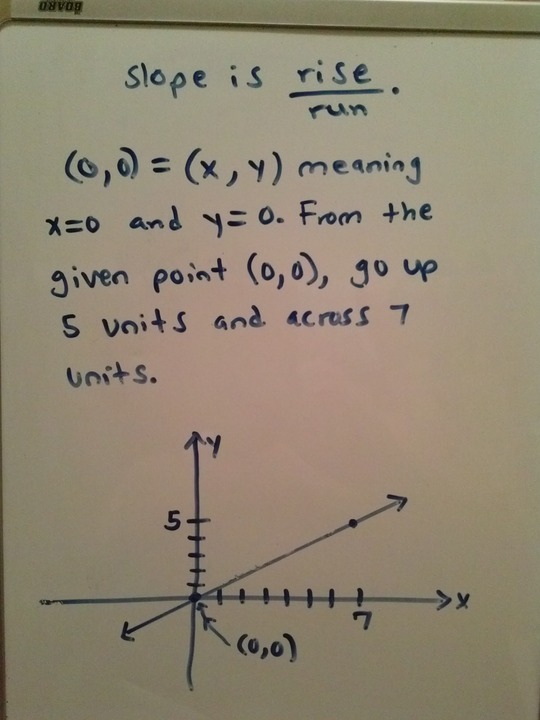 BOARD
slope is rise
run.
(0,0) = (x, y) meaning
x=0 and y=0. From the
given point (0,0), go up
5 units and across 7
units.
y
5
x
7
(0,0)